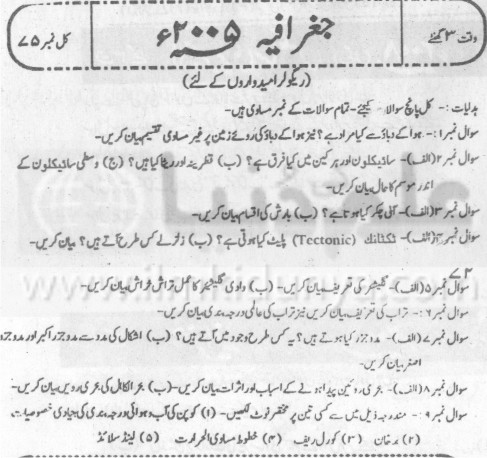 وقت ۳ گھنٹے
جغرافیہ ۲۰۰۵ء
کل نمبر ۷۵
(ریگولر امیدواروں کے لئے)
ہدایات:- کل پانچ سوالات کیجئے- تمام سوالات کے نمبر مساوی ہیں-
سوال نمبر ۱:- ہوا کے دباؤ سے کیا مراد ہے؟ نیز ہوا کے دباؤ کی روئے زمین پر غیر مساوی تقسیم بیان کریں-
سوال نمبر ۲ (الف)- سائیکلون اور ہریکین میں کیا فرق ہے؟ (ب) تطرینہ اور ریٹا کیا ہیں؟ (ج) وسطی سائیکلون کے
اندر موسم کا حال بیان کریں-
سوال نمبر ۳ (الف)- آبی چکر کیا ہوتا ہے؟ (ب) بارش کی اقسام بیان کریں-
سوال نمبر ۴ (الف)- ٹکٹانک (Tectonic) پلیٹ کیا ہوتی ہے؟ (ب) زلزلے کس طرح آتے ہیں؟ بیان کریں-
سوال نمبر ۵ (الف)- گلیشئر کی تعریف بیان کریں- (ب) وادی گلیشئر کا عمل تراش خراش بیان کریں-
سوال نمبر ۶:- تراب کی تعریف بیان کریں نیز تراب کی عالمی درجہ بندی بیان کریں-
سوال نمبر ۷ (الف)- مدوجزر کیا ہوتے ہیں؟ یہ کس طرح وجود میں آتے ہیں؟ (ب) اشکال کی مدد سے مدوجزر اکبر اور مدوجزر
اصغر بیان کریں-
سوال نمبر ۸ (الف)- بحری روئیں پیدا ہونے کے اسباب اور اثرات بیان کریں- (ب) بحر الکاہل کی بحری رویں بیان کریں-
سوال نمبر ۹:- مندرجہ ذیل میں سے کسی تین پر مختصر نوٹ لکھیں- (۱) کوپن کی آب و ہوائی درجہ بندی کی بنیادی خصوصیات
(۲) برخان (۳) کورل ریف (۴) خطوط مساوی الحرارت (۵) لینڈ سلائڈ
www.ilmkidunya.com